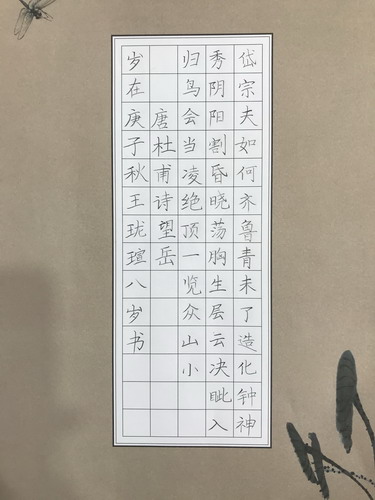 岱宗夫如何齐鲁青未了造化钟神
秀阴阳割昏晓荡胸生层云决眦入
归鸟会当凌绝顶一览众山小
唐杜甫诗望岳
岁在庚子秋王珑瑄八岁书